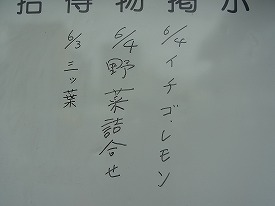 拾得物掲示
6/4 イチゴ・レモン
6/4 野菜詰合せ
6/3 三ッ葉